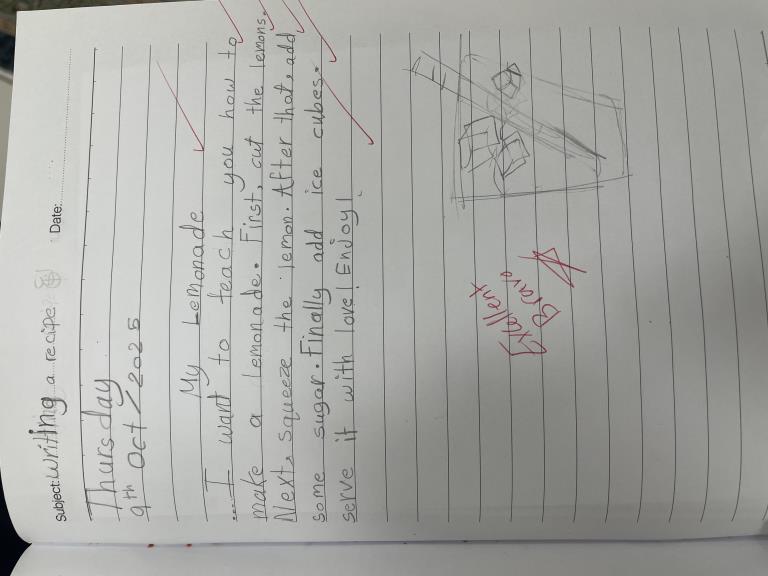 Subject: Writing a recipe Date:
Thursday
9th Oct / 2025
My Lemonade
I want to teach you how to
make a lemonade. First, cut the lemons.
Next, squeeze the lemon. After that, add
some sugar. Finally add ice cubes.
serve it with love! Enjoy!
Excellent
Bravo